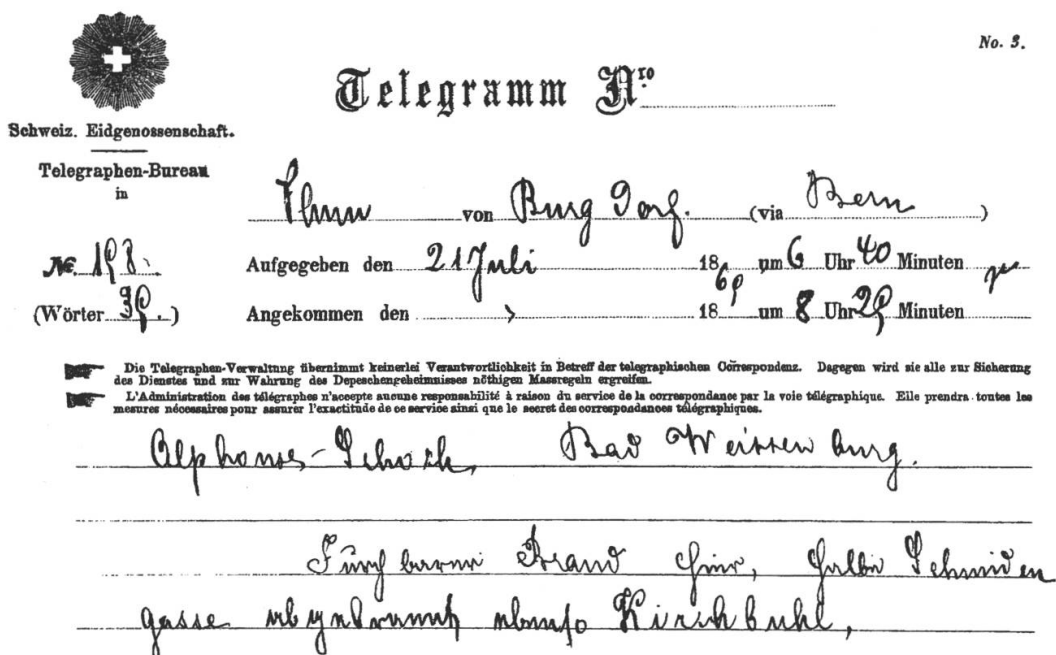 No. 3.
Telegramm Nro
Schweiz. Eidgenossenschaft.
Telegraphen-Bureau
in
Thun von Burgdorf. (via Bern)
No. 198. Aufgegeben den 21 Juli 1865 um 6 Uhr 40 Minuten
(Wörter 39.) Angekommen den " 1865 um 8 Uhr 25 Minuten
Die Telegraphen-Verwaltung übernimmt keinerlei Verantwortlichkeit in Betreff der telegraphischen Correspondenz. Dagegen wird sie alle zur Sicherung
des Dienstes und zur Wahrung des Depeschengeheimnisses nöthigen Massregeln ergreifen.
L'Administration des télégraphes n'accepte aucune responsabilité à raison du service de la correspondance par la voie télégraphique. Elle prendra toutes les
mesures nécessaires pour assurer l'exactitude de ce service ainsi que le secret des correspondances télégraphiques.
Alphonse Schoch, Bad Weissenburg.
Furchbarer Brand hier, Halbe Schmiden
gasse abgebrannt ebenso Kirchbuhl,